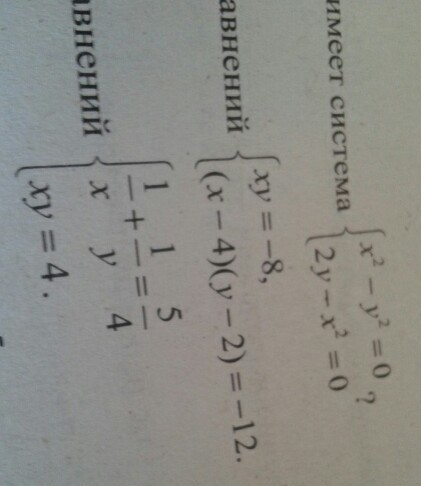 имеет система { x² − y² = 0
2y − x² = 0 ?
авнений { xy = −8,
(x − 4)(y − 2) = −12.
авнений { 1/x + 1/y = 5/4
xy = 4.